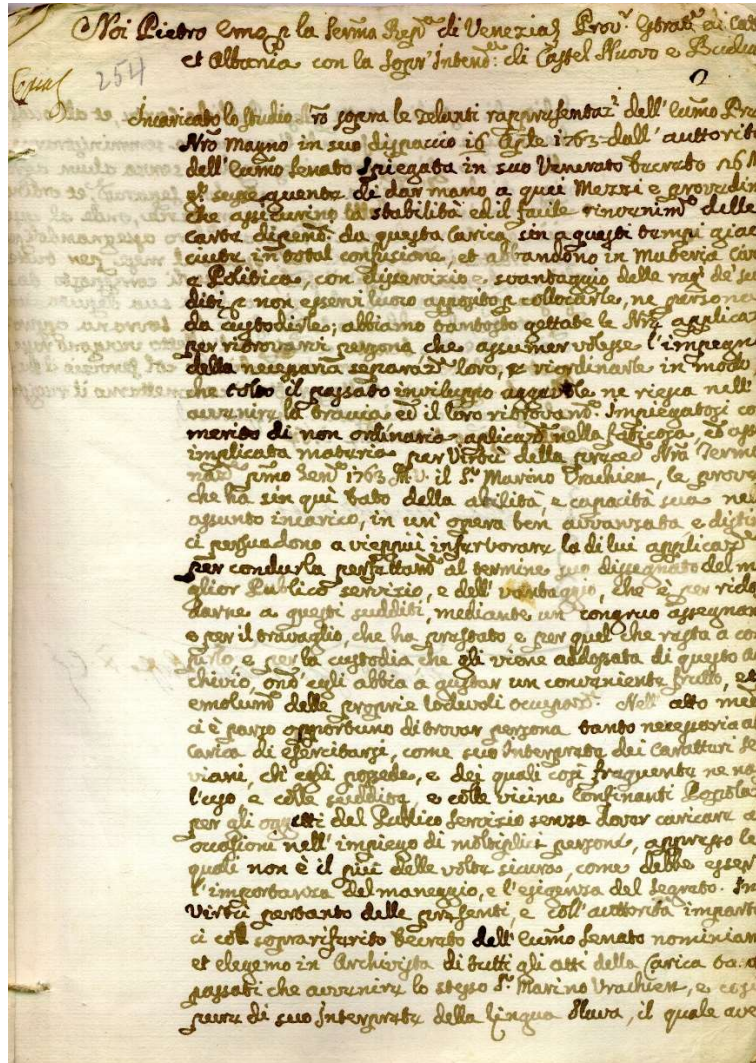 Noi Pietro Emo p la Serma Repca di Venezia Provr Estrario in Cat
et Albania con la Sopr'Intendza di Castel Nuovo e Budua
Copia
254
Incaricato lo studio Nro sopra le zelanti rappresentaz. dell'Eccmo Pre
Nro Magno in suo dispaccio 16 Aple 1763 dall'auttorità
dell'Eccmo Senato spiegata in suo Venerato Decreto 26
di dar mano a quei Mezzi e provedim
che assicurino la stabilità ed il facile rinvenimto delle
carte dipendti da questa Carica sin a questi tempi giac
ciute in total confusione, et abbandono in Materia
e Politica, con disservizio e svantaggio delle ragni de' su
diti p non esservi luoco apposito p collocarle, ne persona
da custodirle; abbiamo tantosto gettate le Nre applicaz
per ritrovarvi persona che assumer volesse l'impegno
della necessaria separazne loro, e riordinarle in modo
che tolto il passato inviluppo ne riesca nell'
avvenire la traccia ed il loro ritrovamto. Impiegatosi co
merito di non ordinaria aplicazne nella faticosa, et
implicata materia per virtù della preced. Nra Termi
nazne pmo Genro 1763 M.V. il Sr Marino Vrachien, le prove
che ha sin quì dato della abilità, e capacità sua ne
assunto incarico, in un'opera ben avvanzata e diste
ci persuadono a vieppiù infervorare la di lui applicaz
per condurla perfettamte al termine suo dissegnato del m
glior Publico servizio, e dell'vantaggio, che è per rido
darne a questi sudditi, mediante un congruo assegnam
e per il travaglio, che ha prestato e per quel che resta a co
pirlo e per la custodia che gli viene addossata di questo ar
chivio, ond'egli abbia a gustar un conveniente frutto, et
emolumto delle proprie lodevoli occupazni. Nell'atto me
ci è parso opportuno di trovar persona tanto necessaria a
Carica di esercitarsi, come suo Interprete dei Caratteri Se
viani, ch'egli possede, e dei quali così frequente ne na
l'uso, e colle suddite, e colle vicine confinanti Popolaz
per gli oggetti del Publico Servizio senza dover caricare
occasioni nell'impiego di moltiplici persone, appresso le
quali non è il più delle volte sicura, come debbe esser
l'importanza del maneggio, e l'esigenza del Segreto. In
virtù pertanto delle presenti, e coll'auttorità impart
ci col soprariferito Decreto dell'Eccmo Senato nominiam
et elegemo in Archivista di tutti gli atti della Carica
passati che avvenire lo stesso Sr Marino Vrachien, e cos
pure di suo Interprete della Lingua Slava, il quale ave